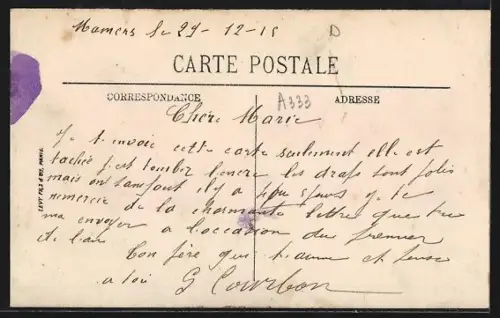 Mamers le 29-12-15
D
CARTE POSTALE
A333
CORRESPONDANCE
ADRESSE
Chère Marie
Je t envoie cette carte seulement elle est
tachée j'ai tomber lencre les draps sont jolis
mais on sanfout il y a je te
remercie de la charmante lettres que tu
ma envoyer a loccasion du premier
de lan
Ton frère qui t'aime et pense
a toi G Courbon
LEVY FILS & CIE, PARIS.